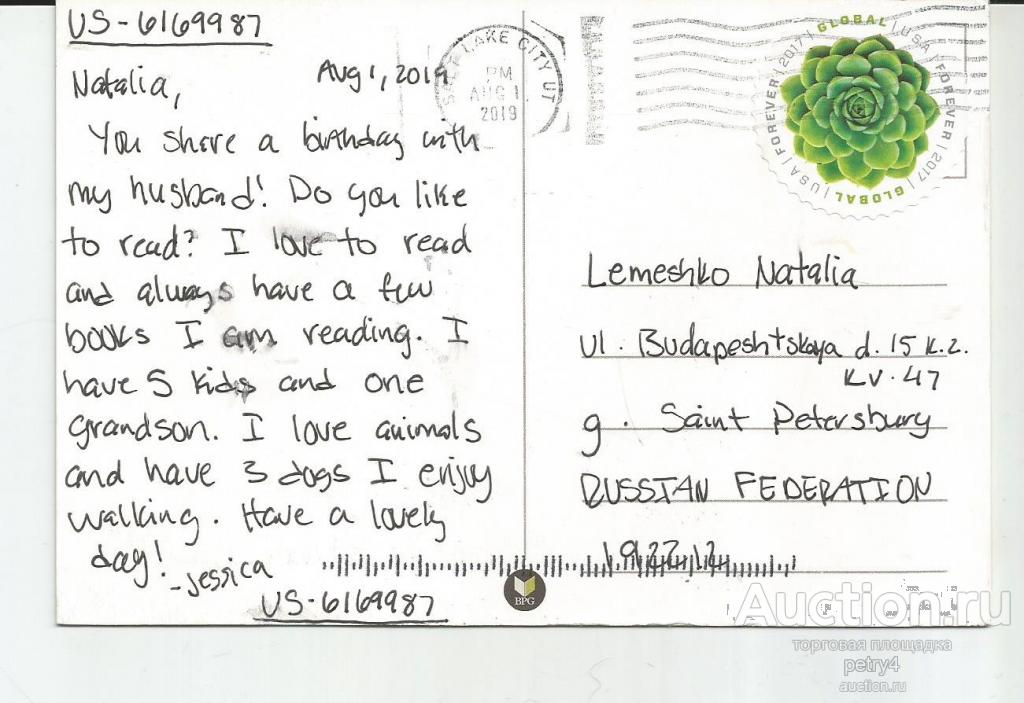 US-6169987
Natalia,
Aug 1, 2019
You share a birthday with
my husband! Do you like
to read? I love to read
and always have a few
books I am reading. I
have 5 kids and one
grandson. I love animals
and have 3 dogs I enjoy
walking. Have a lovely
day!
-Jessica
US-6169987
SALT LAKE CITY UT
PM
AUG 1
2019
GLOBAL | USA | FOREVER | 2017 | GLOBAL | USA | FOREVER | 2017
Lemeshko Natalia
ul. Budapeshtskaya d. 15 k.2.
kv. 47
g. Saint Petersburg
RUSSIAN FEDERATION
192212
BPG
Auction.ru
торговая площадка
petry4
auction.ru